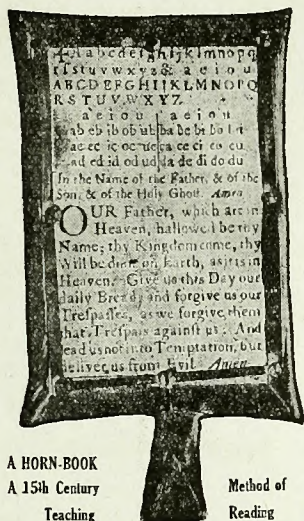 a b c d e f g h i j k l m n o p q
r ſ s t u v w x y z & a e i o u
A B C D E F G H I J K L M N O P Q
R S T U V W X Y Z
a e i o u a e i o u
ab eb ib ob ub ba be bi bo bu
ac ec ic oc uc ca ce ci co cu
ad ed id od ud da de di do du
In the Name of the Father, & of the
Son, & of the Holy Ghoſt. Amen
OUR Father, which art in
Heaven, hallowed be thy
Name; thy Kingdom come, thy
Will be done on Earth, as it is in
Heaven. Give us this Day our
daily Bread, and forgive us our
Treſpaſſes, as we forgive them
that Treſpaſs againſt us: And
lead us not into Temptation, but
deliver us from Evil. Amen.
A HORN-BOOK
A 15th Century Method of
Teaching Reading